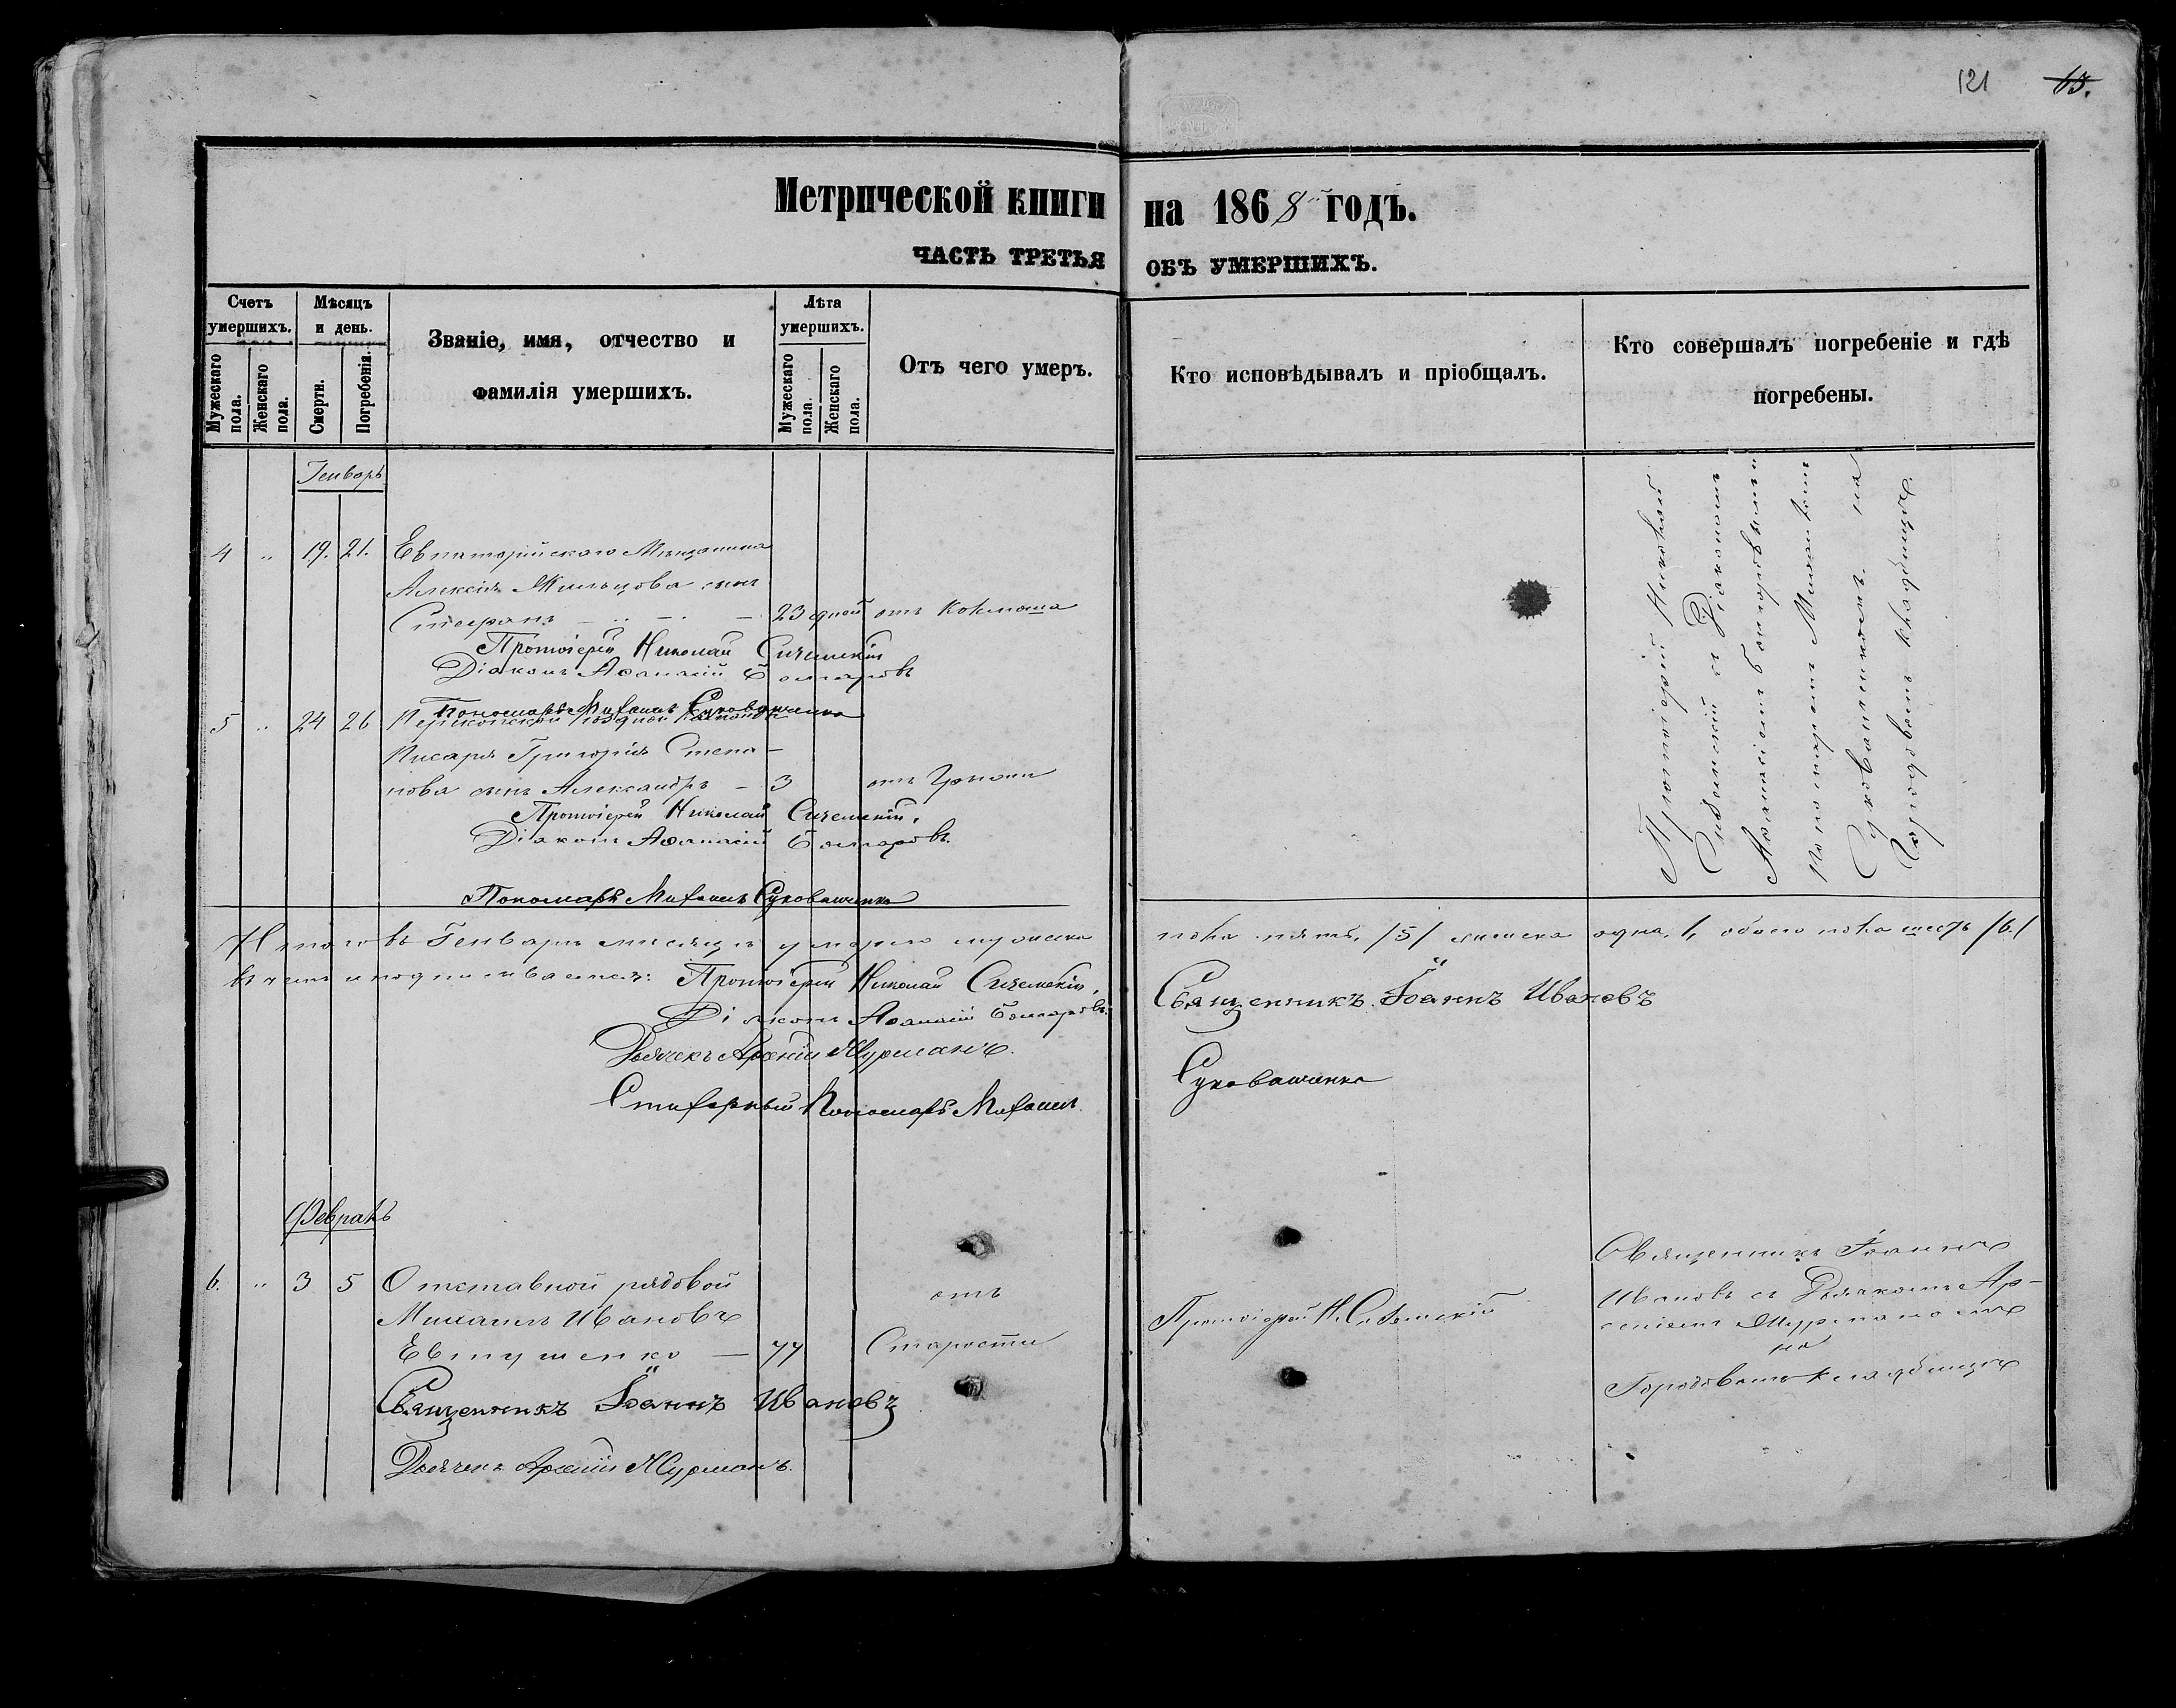 121 13.
Метрической книги на 1868 годъ.
ЧАСТЬ ТРЕТЬЯ ОБЪ УМЕРШИХЪ.
Счетъ умершихъ.
Мужескаго пола.
Женскаго пола.
Мѣсяцъ и день.
Смерти.
Погребенія.
Званіе, имя, отчество и
фамилія умершихъ.
Лѣта умершихъ.
Мужескаго пола.
Женскаго пола.
Отъ чего умеръ.
Кто исповѣдывалъ и пріобщалъ.
Кто совершалъ погребеніе и гдѣ
погребены.
Генварь
4 „ 19. 21. Евпаторійскаго Мѣщанина
Алексія сынъ
Стефанъ 23 дней отъ Кокмоша
Протоіерей Николай
Діаконъ Аѳанасій
Пономарь Михаилъ Суковатенко
5 „ 24 26
Писаря Григорія Степа-
нова сынъ Александръ – 3 отъ
Протоіерей Николай
Діаконъ Аѳанасій
Пономарь Михаилъ Суковатенко
Протоіерей Николай
съ Діакономъ
Аѳанасіемъ
Пономаремъ Михаиломъ
на
Городовомъ кладбищѣ.
Итого въ Генварѣ мѣсяцѣ умерло мужеска пола пять, /5/ женска одна, 1, обоего пола шесть /6/
въ чемъ и подписываемся: Протоіерей Николай
Священникъ Іоаннъ Ивановъ
Діаконъ Аѳанасій
Дьячекъ Арсеній Журманъ.
Стихарный Пономарь Михаилъ
Суковатенко
Февраль
6. „ 3 5 Отставной рядовой
Михаилъ Ивановъ
Евтушенко – 77
отъ
Старости
Протоіерей Н.
Священникъ Іоаннъ
Ивановъ съ Дьячкомъ Ар-
сеніемъ Журманомъ
на
Городовомъ кладбищѣ
Священникъ Іоаннъ Ивановъ
Дьячекъ Арсеній Журманъ.